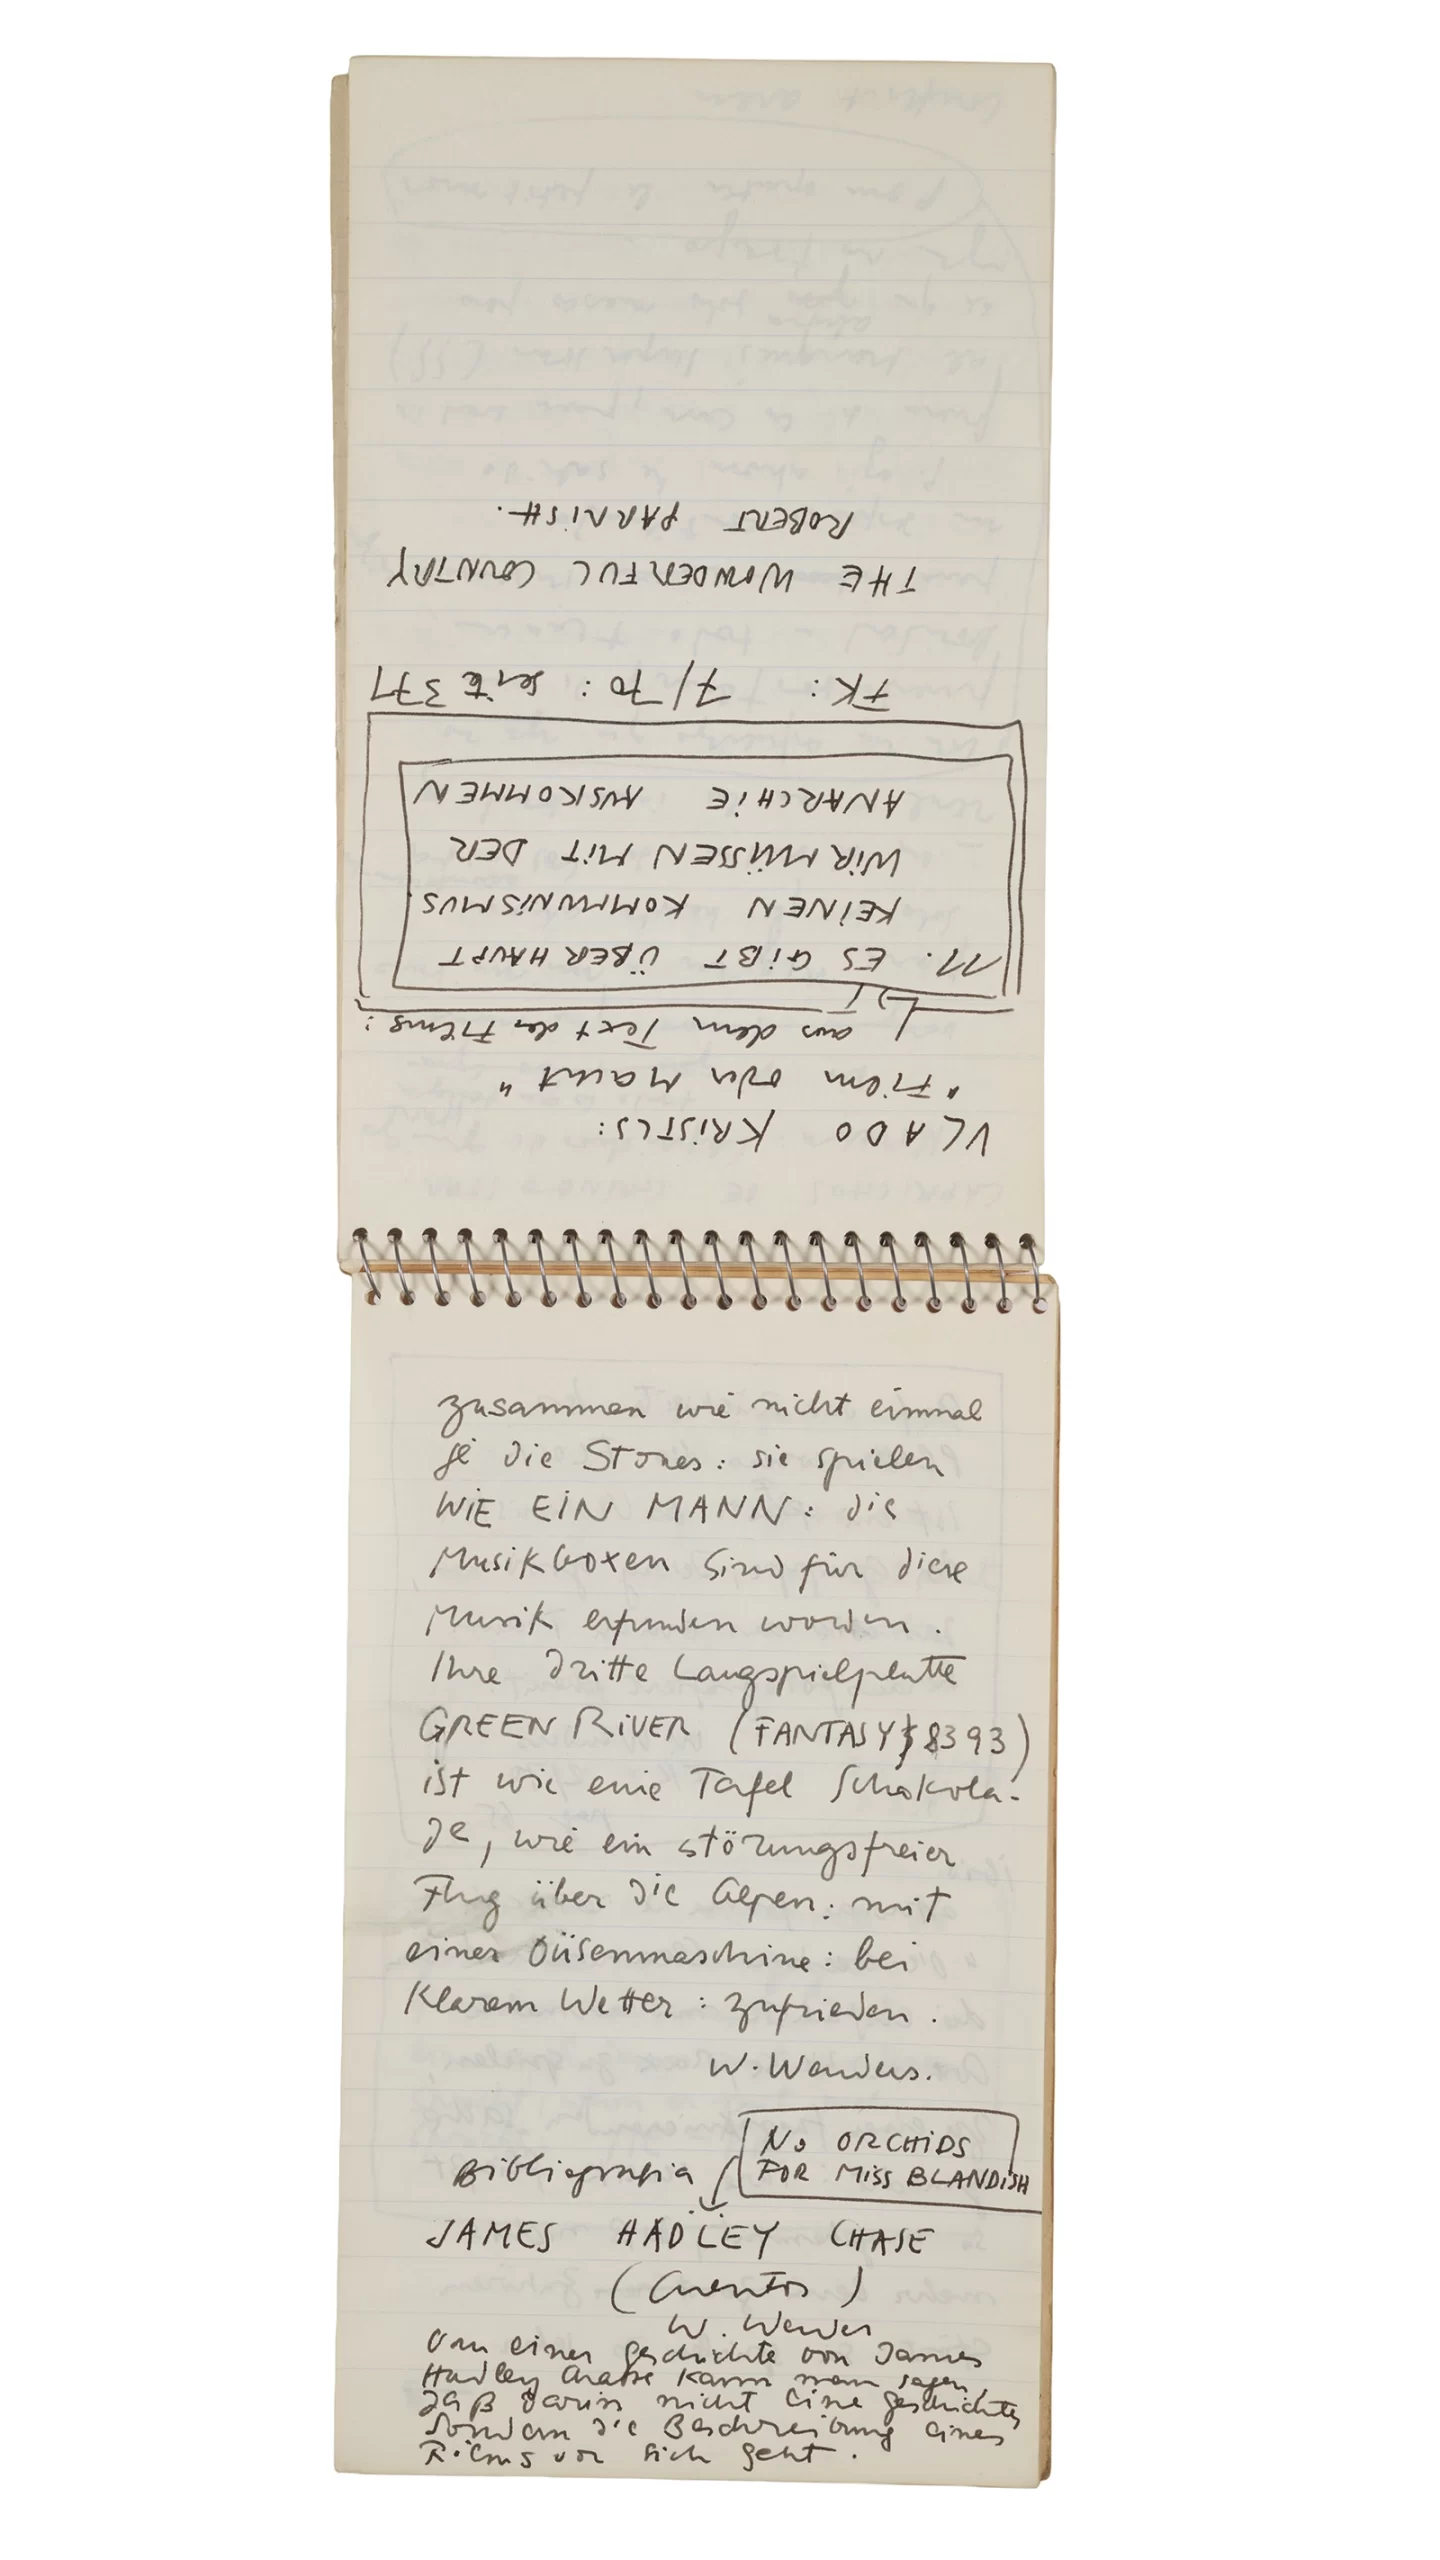 VLADO KRISTLS:
"Film oder Macht"
aus dem Text des Films:
11. ES GiBT ÜBERHAUPT
KEINEN KOMMUNiSMUS
WiR MÜSSEN MiT DER
ANARCHiE AUSKOMMEN
FK: 7/70: seite 371
THE WONDERFUL COUNTRY
ROBERT PARRISH.
zusammen wie nicht einmal
die Stones: sie spielen
WiE EiN MANN: die
Musikboxen sind für diese
Musik erfunden worden.
Ihre dritte Langspielplatte
GREEN RiVER (FANTASY 8393)
ist wie eine Tafel Schokola-
de, wie ein störungsfreier
Flug über die Alpen: mit
einer Düsenmaschine: bei
Klarem Wetter: zufrieden.
W. Wenders.
Bibliografia
No ORCHiDS
FOR Miss BLANDiSH
JAMES HADLEY CHASE
(Cuentos)
W. Wender
Von einer geschichte von James
Hadley Chase kann man sagen,
daß darin nicht eine geschichte,
Sondern die Beschreibung eines
Films vor sich geht.